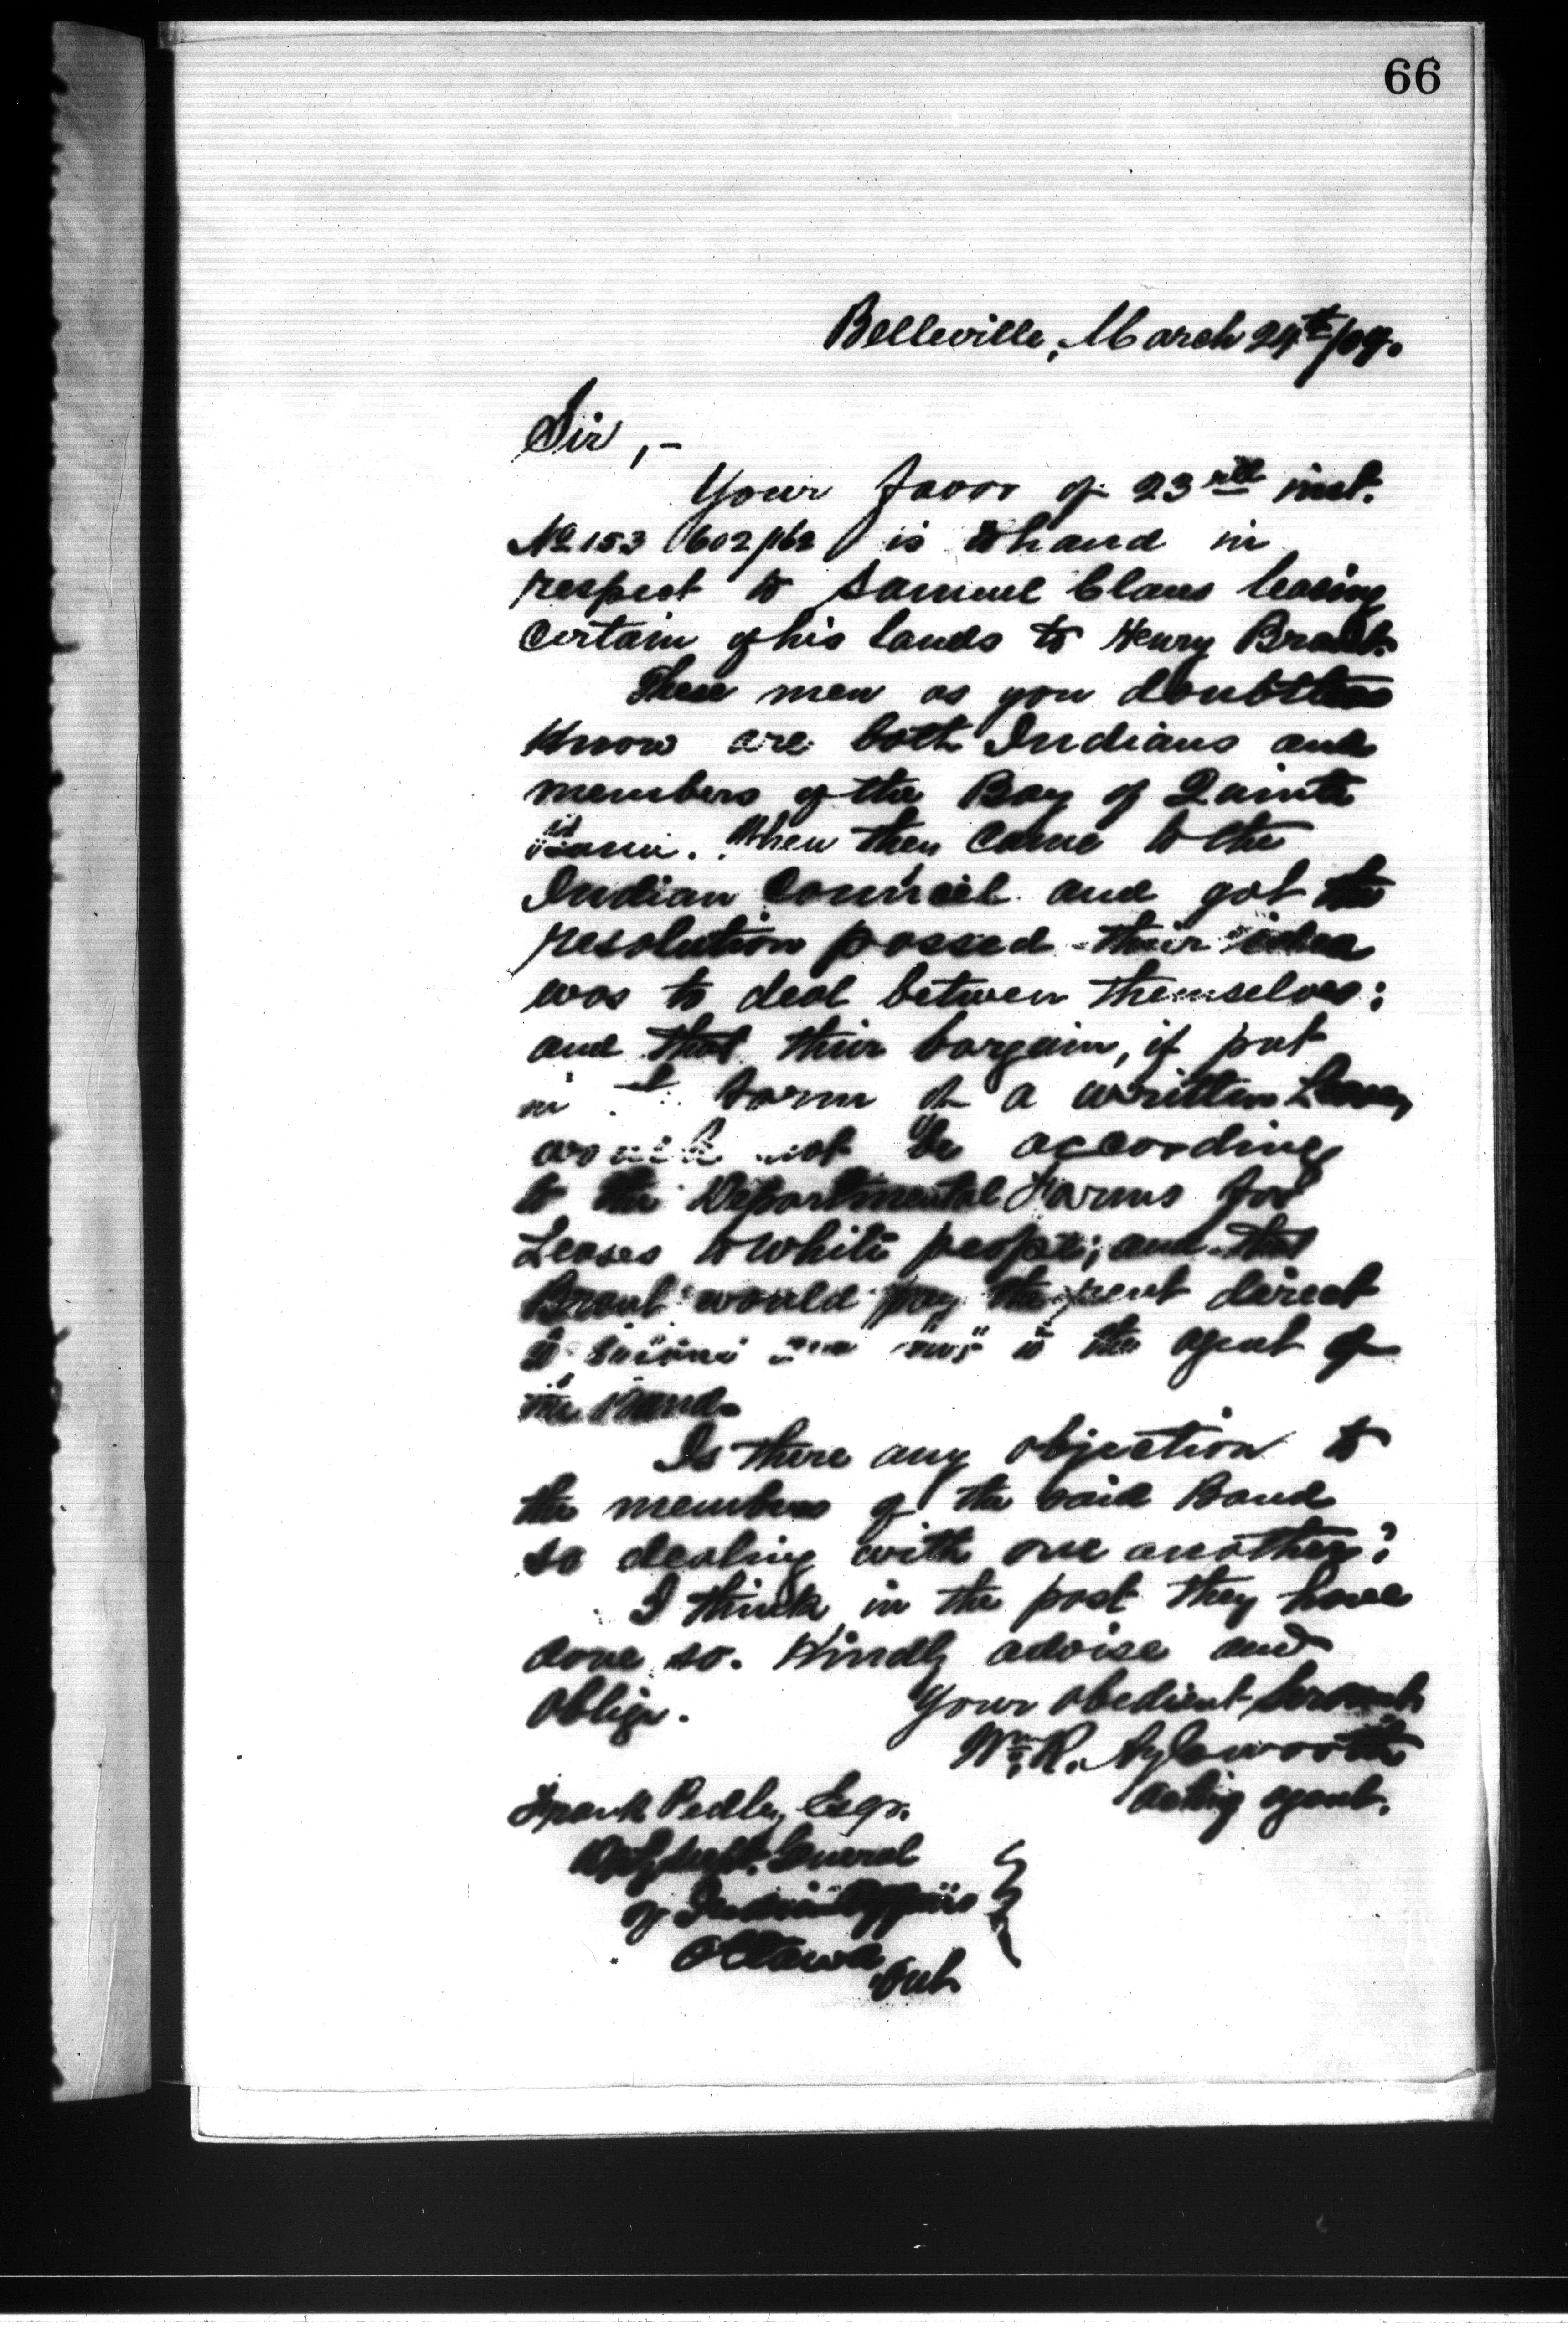 66
Belleville, March 24th/09.
Sir,-
Your favor of 23rd inst.
No 153602/162 is to hand in
respect to Samuel Claus leasing
certain of his lands to Henry Brant.
These men as you doubtless
know are both Indians and
members of the Bay of Quinte
Band. When they came to the
Indian Council and got the
resolution passed their idea
was to deal between themselves;
and that their bargain, if put
in form of a written Lease,
would not be according
to the Departmental Forms for
Leases to white people; and that
Brant would pay the rent direct
to the agent of
the Band.
Is there any objection to
the members of the said Band
so dealing with one another?
I think in the past they have
done so. Kindly advise and
oblige. Your obedient Servant,
Wm. R. Aylsworth
Acting agent.
Frank Pedley, Esqr.
Dpty Supt. General
of Indian Affairs
Ottawa, Ont.